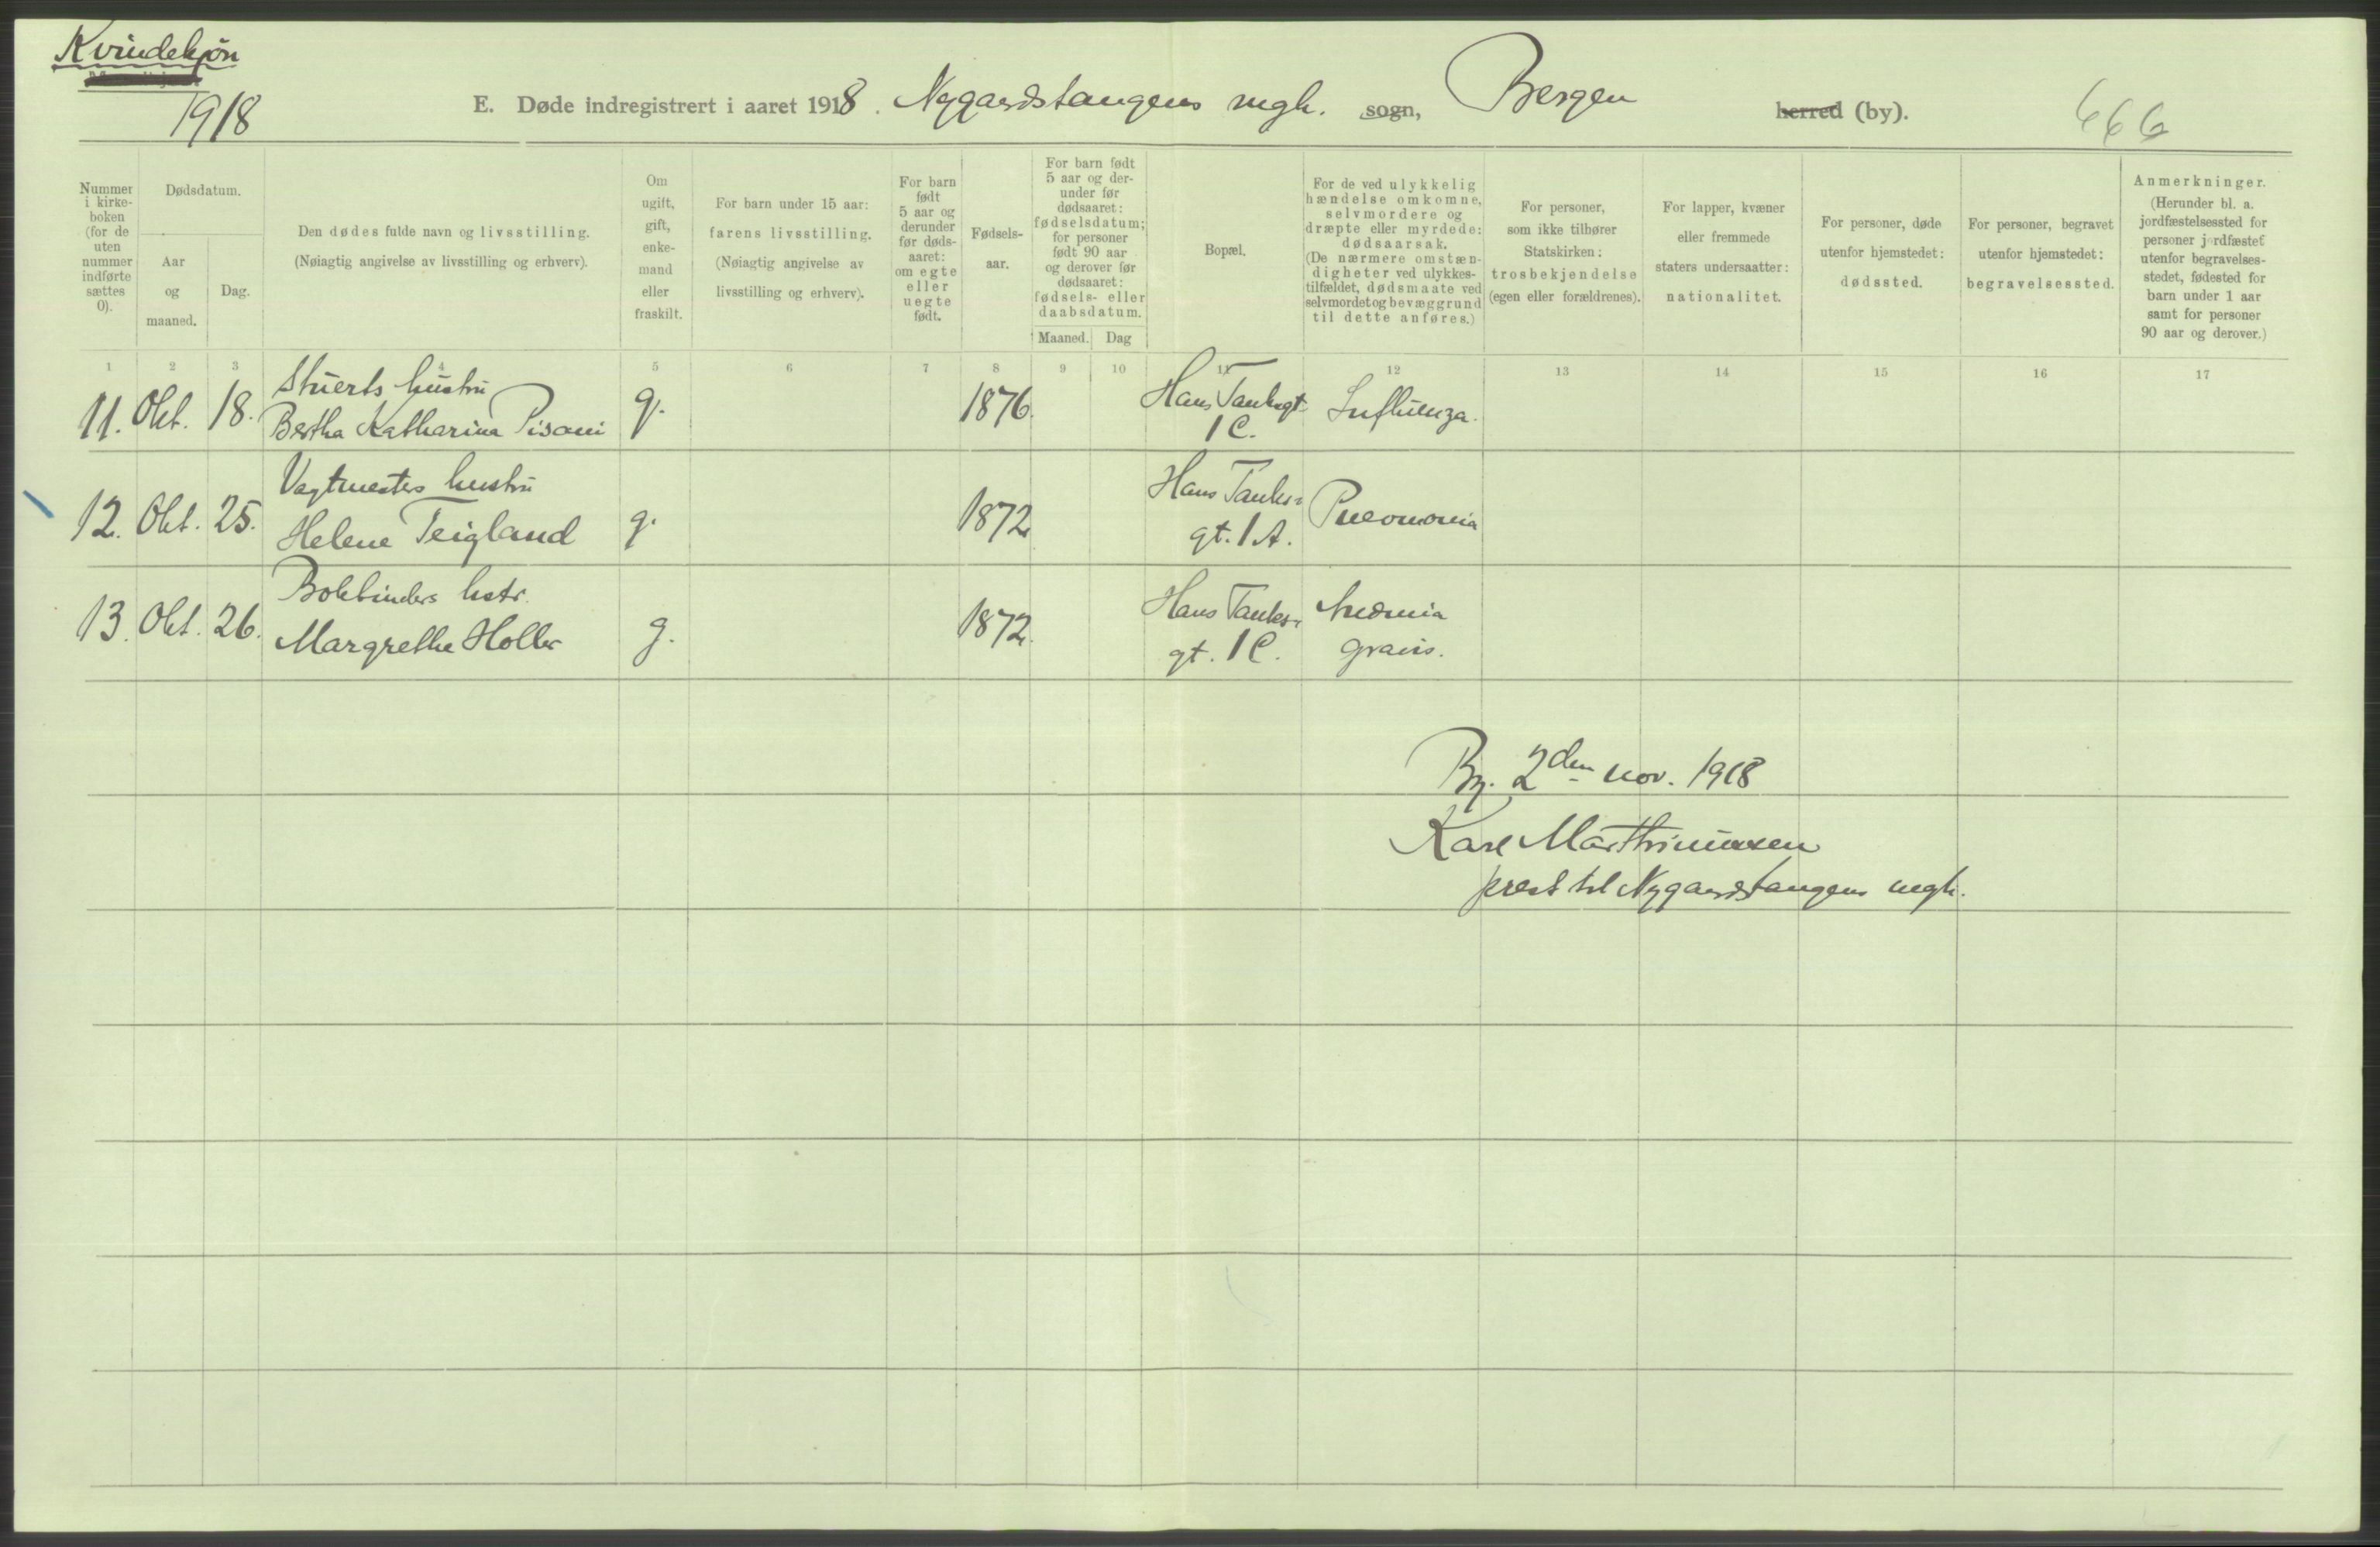 Kvindekjøn
1918
E. Døde indregistrert i aaret 1918. Nygaardstangens mgh. sogn, Bergen herred (by).
666
Nummer i kirke-boken (for de uten nummer indførte sættes 0).
Dødsdatum.
Aar og maaned.
Dag.
Den dødes fulde navn og livsstilling.
(Nøiagtig angivelse av livsstilling og erhverv).
Om ugift, gift, enke-mand eller fraskilt.
For barn under 15 aar: farens livsstilling.
(Nøiagtig angivelse av livsstilling og erhverv).
For barn født 5 aar og derunder før døds-aaret: om egte eller uegte født.
Fødsels-aar.
For barn født 5 aar og der-under før dødsaaret: fødselsdatum; for personer født 90 aar og derover før dødsaaret: fødsels- eller daabsdatum.
Maaned.
Dag
Bopæl.
For de ved ulykkelig hændelse omkomne, selvmordere og dræpte eller myrdede: dødsaarsak.
(De nærmere omstæn-digheter ved ulykkes-tilfældet, dødsmaate ved selvmordet og bevæggrund til dette anføres.)
For personer, som ikke tilhører Statskirken: trosbekjendelse (egen eller forældrenes).
For lapper, kvæner eller fremmede staters undersaatter: nationalitet.
For personer, døde utenfor hjemstedet: dødssted.
For personer, begravet utenfor hjemstedet: begravelsessted.
Anmerkninger.
(Herunder bl. a. jordfæstelsessted for personer jordfæstet utenfor begravelses-stedet, fødested for barn under 1 aar samt for personer 90 aar og derover.)
1 2 3 4 5 6 7 8 9 10 11 12 13 14 15 16 17
11. Okt. 18. Stuerts hustru Bertha Katharina Pisani g. 1876. Hans Tanksgt. 1 C. Influenza.
12. Okt. 25. Vagtmesters hustru Helene Teigland g. 1872 Hans Tanks-gt. 1 A. Pneomonia
13. Okt. 26. Bokbinders hstr. Margrethe Holler g. 1872. Hans Tanks-gt. 1 C. Anæmia gravis.
Bg. 2den nov. 1918
Karl Marthinussen
prest til Nygaardstangens mgh.